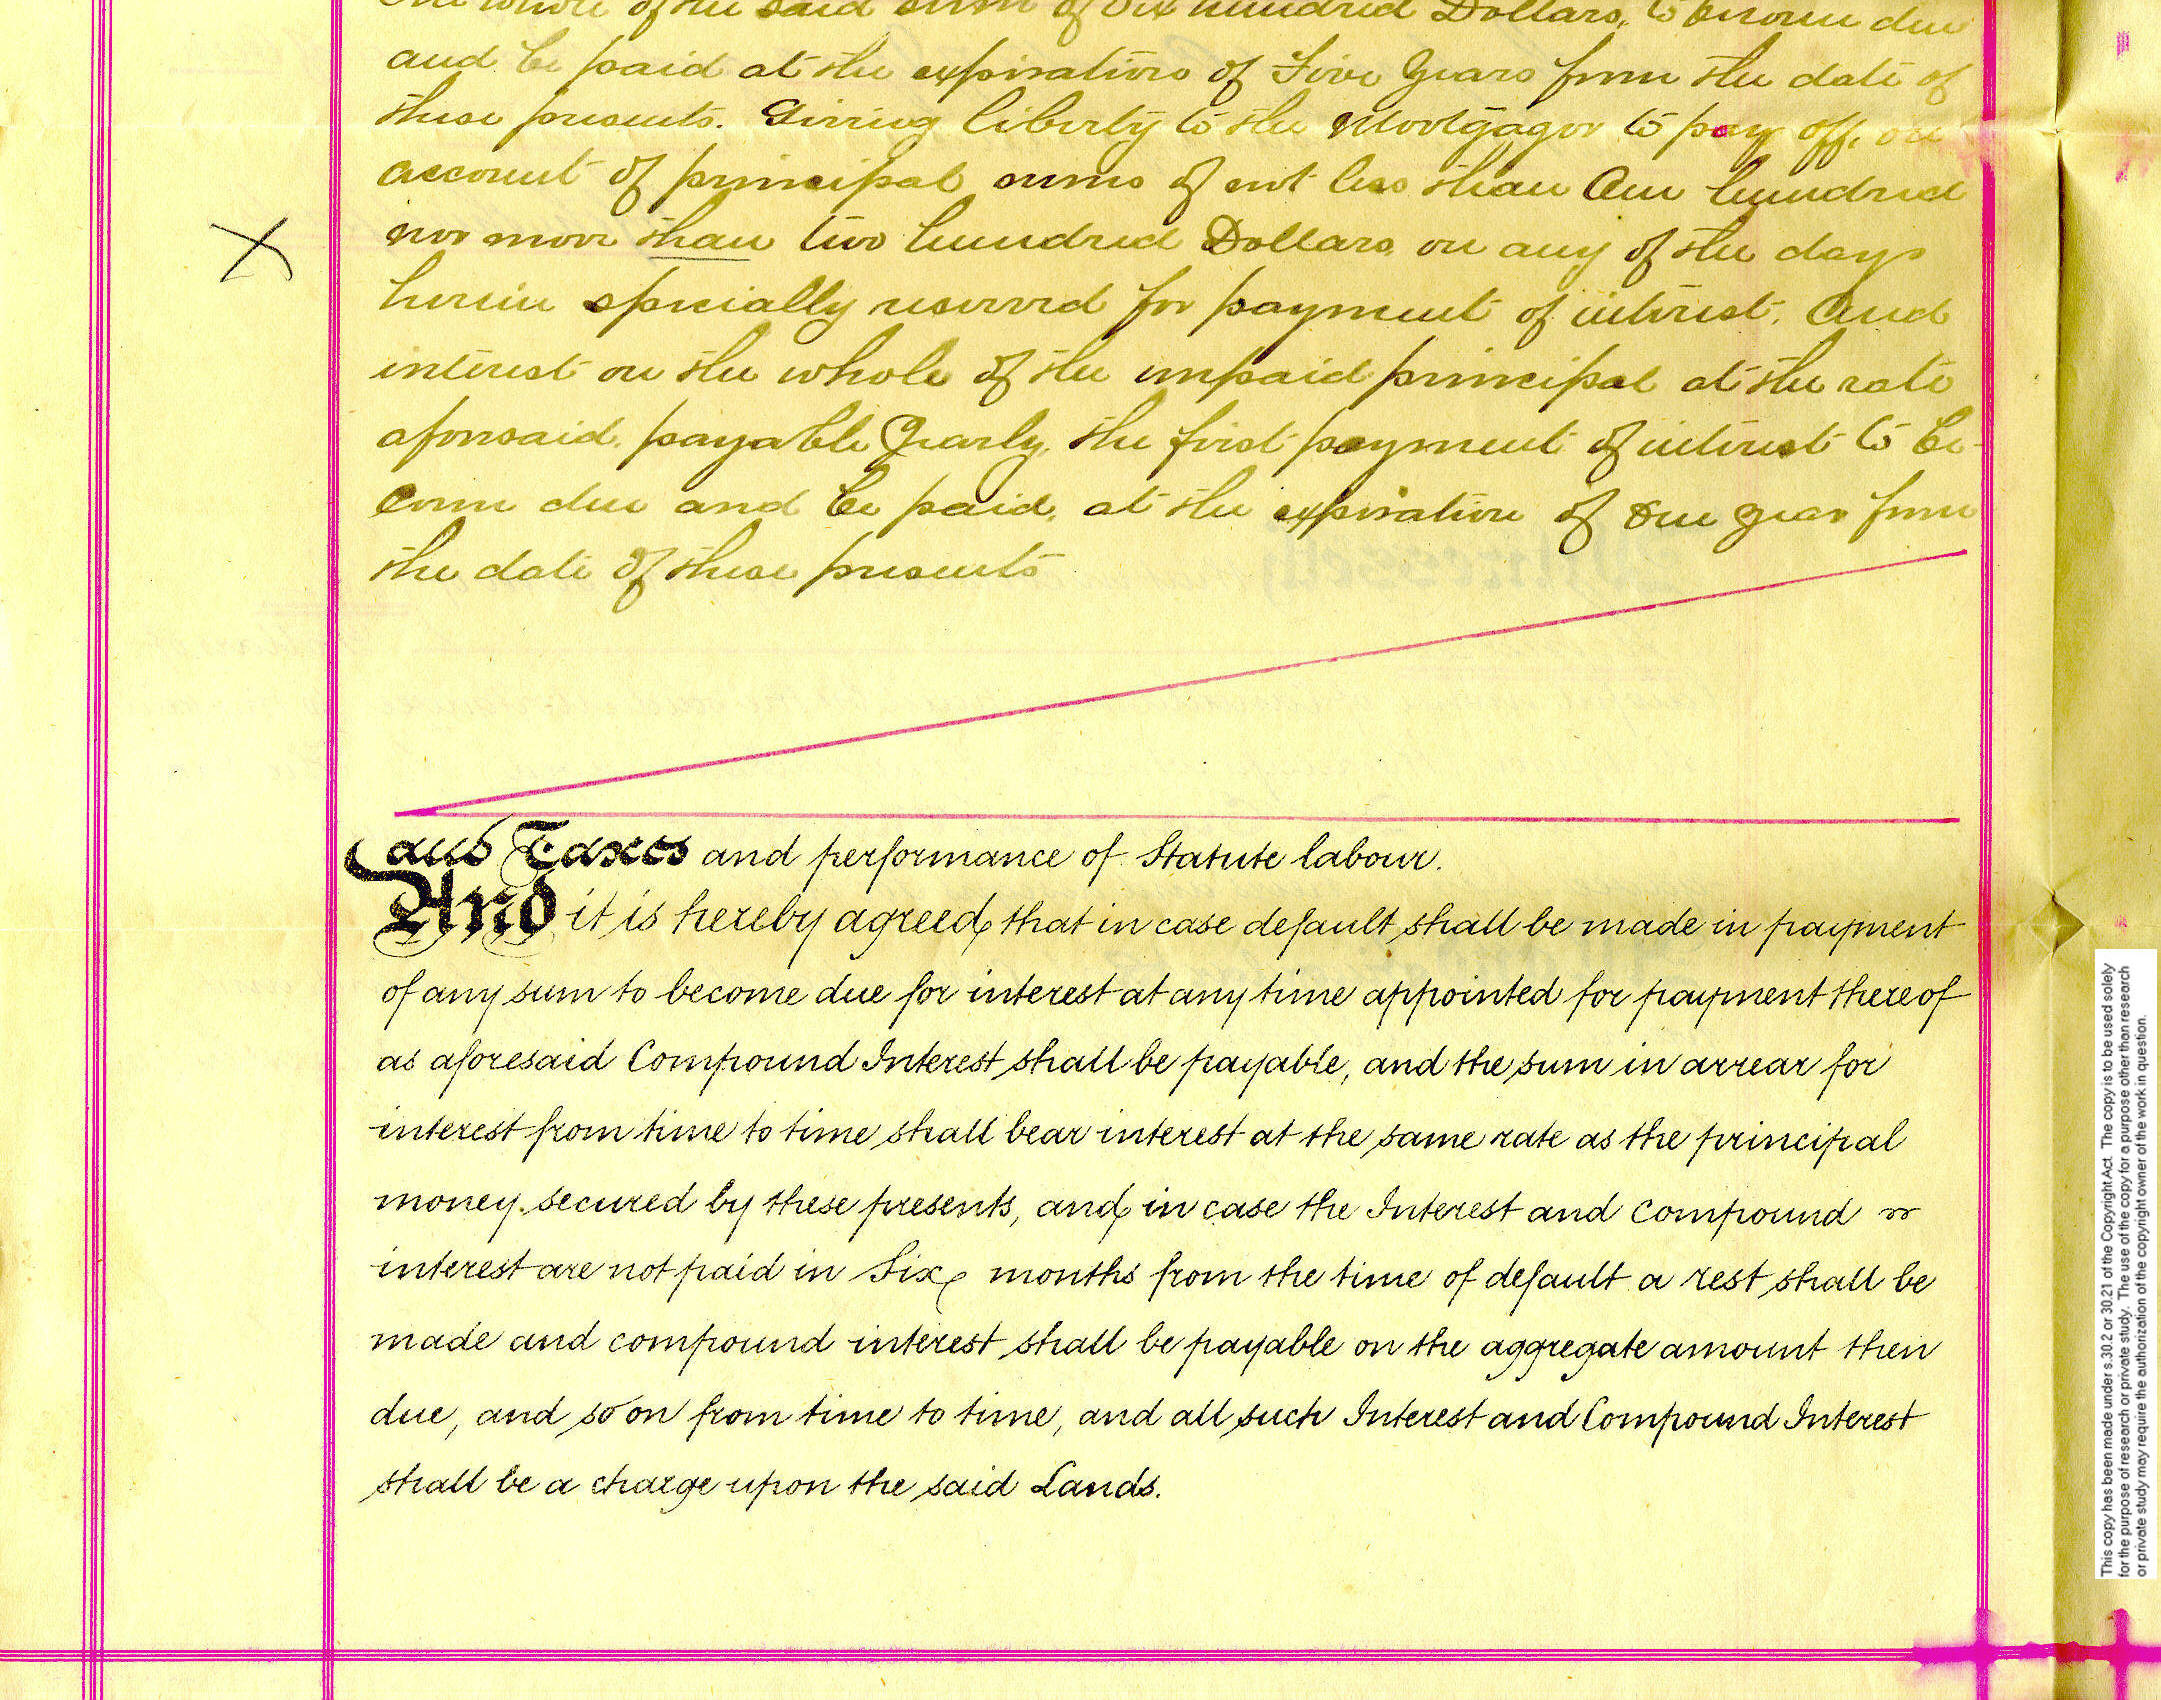 The whole of the said sum of Six hundred Dollars, to become due
and be paid at the expiration of Five Years from the date of
these presents. Giving liberty to the Mortgagor to pay off, on
account of principal sums of not less than One hundred
nor more than two hundred Dollars on any of the days
herein specially reserved for payment of interest. And
interest on the whole of the unpaid principal at the rate
aforesaid, payable Yearly, the first payment of interest to be-
come due and be paid, at the expiration of one year from
the date of these presents
and Taxes and performance of Statute labour.
And it is hereby agreed, that in case default shall be made in payment
of any sum to become due for interest at any time appointed for payment thereof
as aforesaid Compound Interest shall be payable, and the sum in arrear for
interest from time to time shall bear interest at the same rate as the principal
money secured by these presents, and in case the Interest and compound
interest are not paid in Six months from the time of default a rest shall be
made and compound interest shall be payable on the aggregate amount then
due, and so on from time to time, and all such Interest and Compound Interest
shall be a charge upon the said Lands.
This copy has been made under s.30.2 or 30.21 of the Copyright Act. The copy is to be used solely
for the purpose of research or private study. The use of the copy for a purpose other than research
or private study may require the authorization of the copyright owner of the work in question.